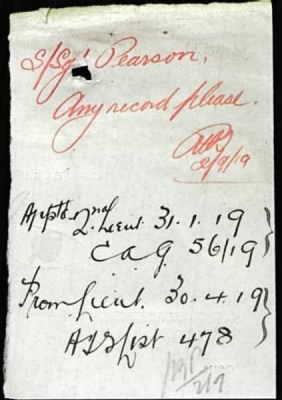 S/Sgt Pearson,
Any record please.
2/9/19
2 Lieut. 31.1.19
C A G 56/19
Prom Lieut. 30.4.19
List 478
2/9